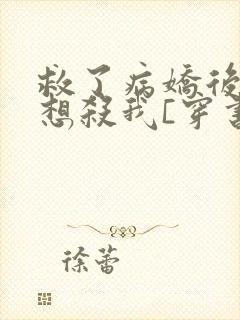 救了病嬌後
想殺我[穿書
徐蕾